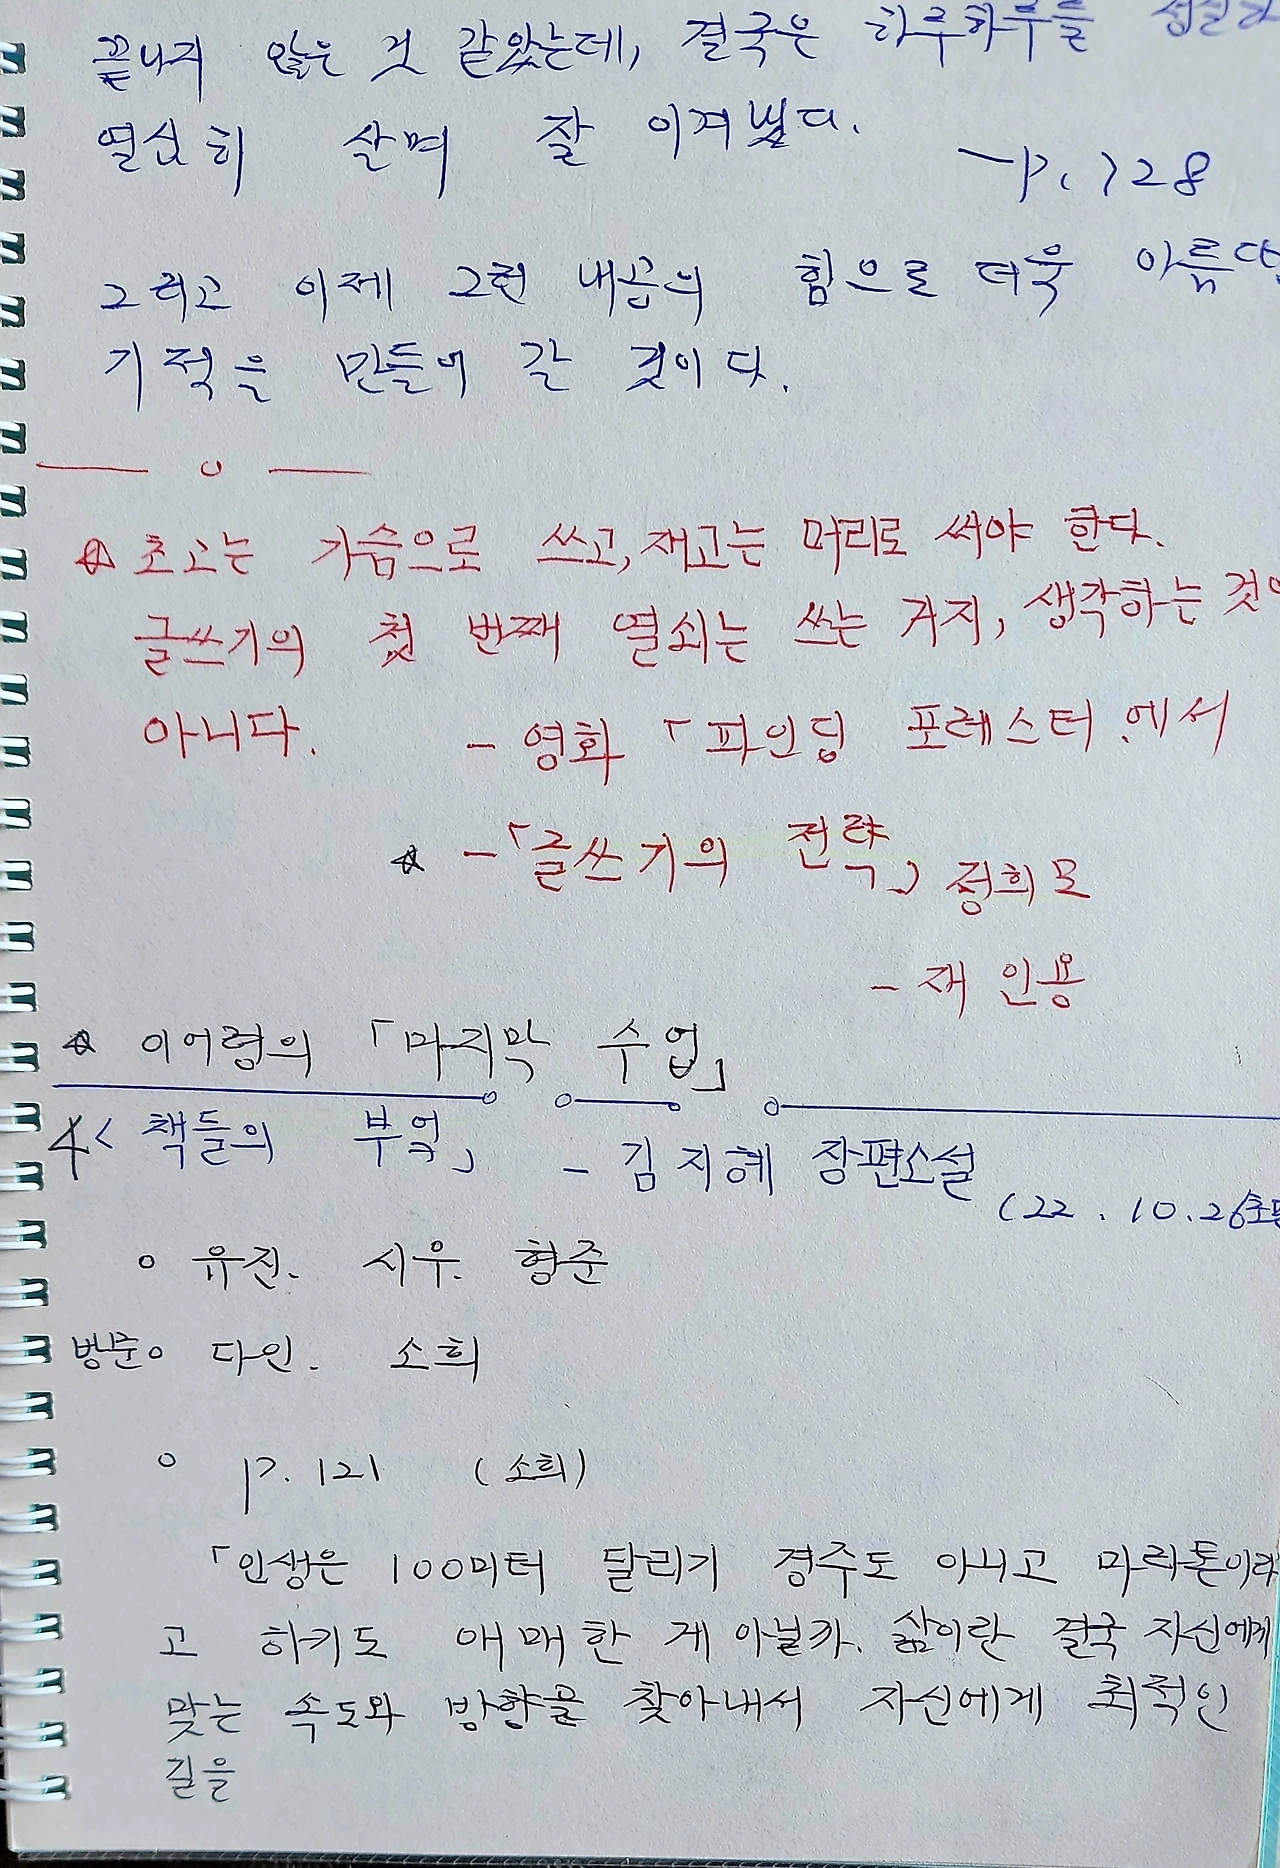 끝나지 않은 것 같았는데, 결국은 하루하루를
열심히 살며 잘 이겨냈다.
-p. 228
그리고 이제 그런 내공의 힘으로 더욱 아름답
기적을 만들어 갈 것이다.
☆ 초고는 가슴으로 쓰고, 재고는 머리로 써야 한다.
글쓰기의 첫 번째 열쇠는 쓰는 거지, 생각하는 것이
아니다. - 영화 「파인딩 포레스터」에서
☆ -「글쓰기의 전략」 정희모
- 재 인용
☆ 이어령의 「마지막 수업」
4< 책들의 부엌」 - 김지혜 장편소설
(22. 10. 26초판
○ 유진. 시우. 형준
○ 다인. 소희
○ p. 121 (소희)
「인생은 100미터 달리기 경주도 아니고 마라톤이라
고 하기도 애매한 게 아닐까. 삶이란 결국 자신에게
맞는 속도와 방향을 찾아내서 자신에게 최적인
길을